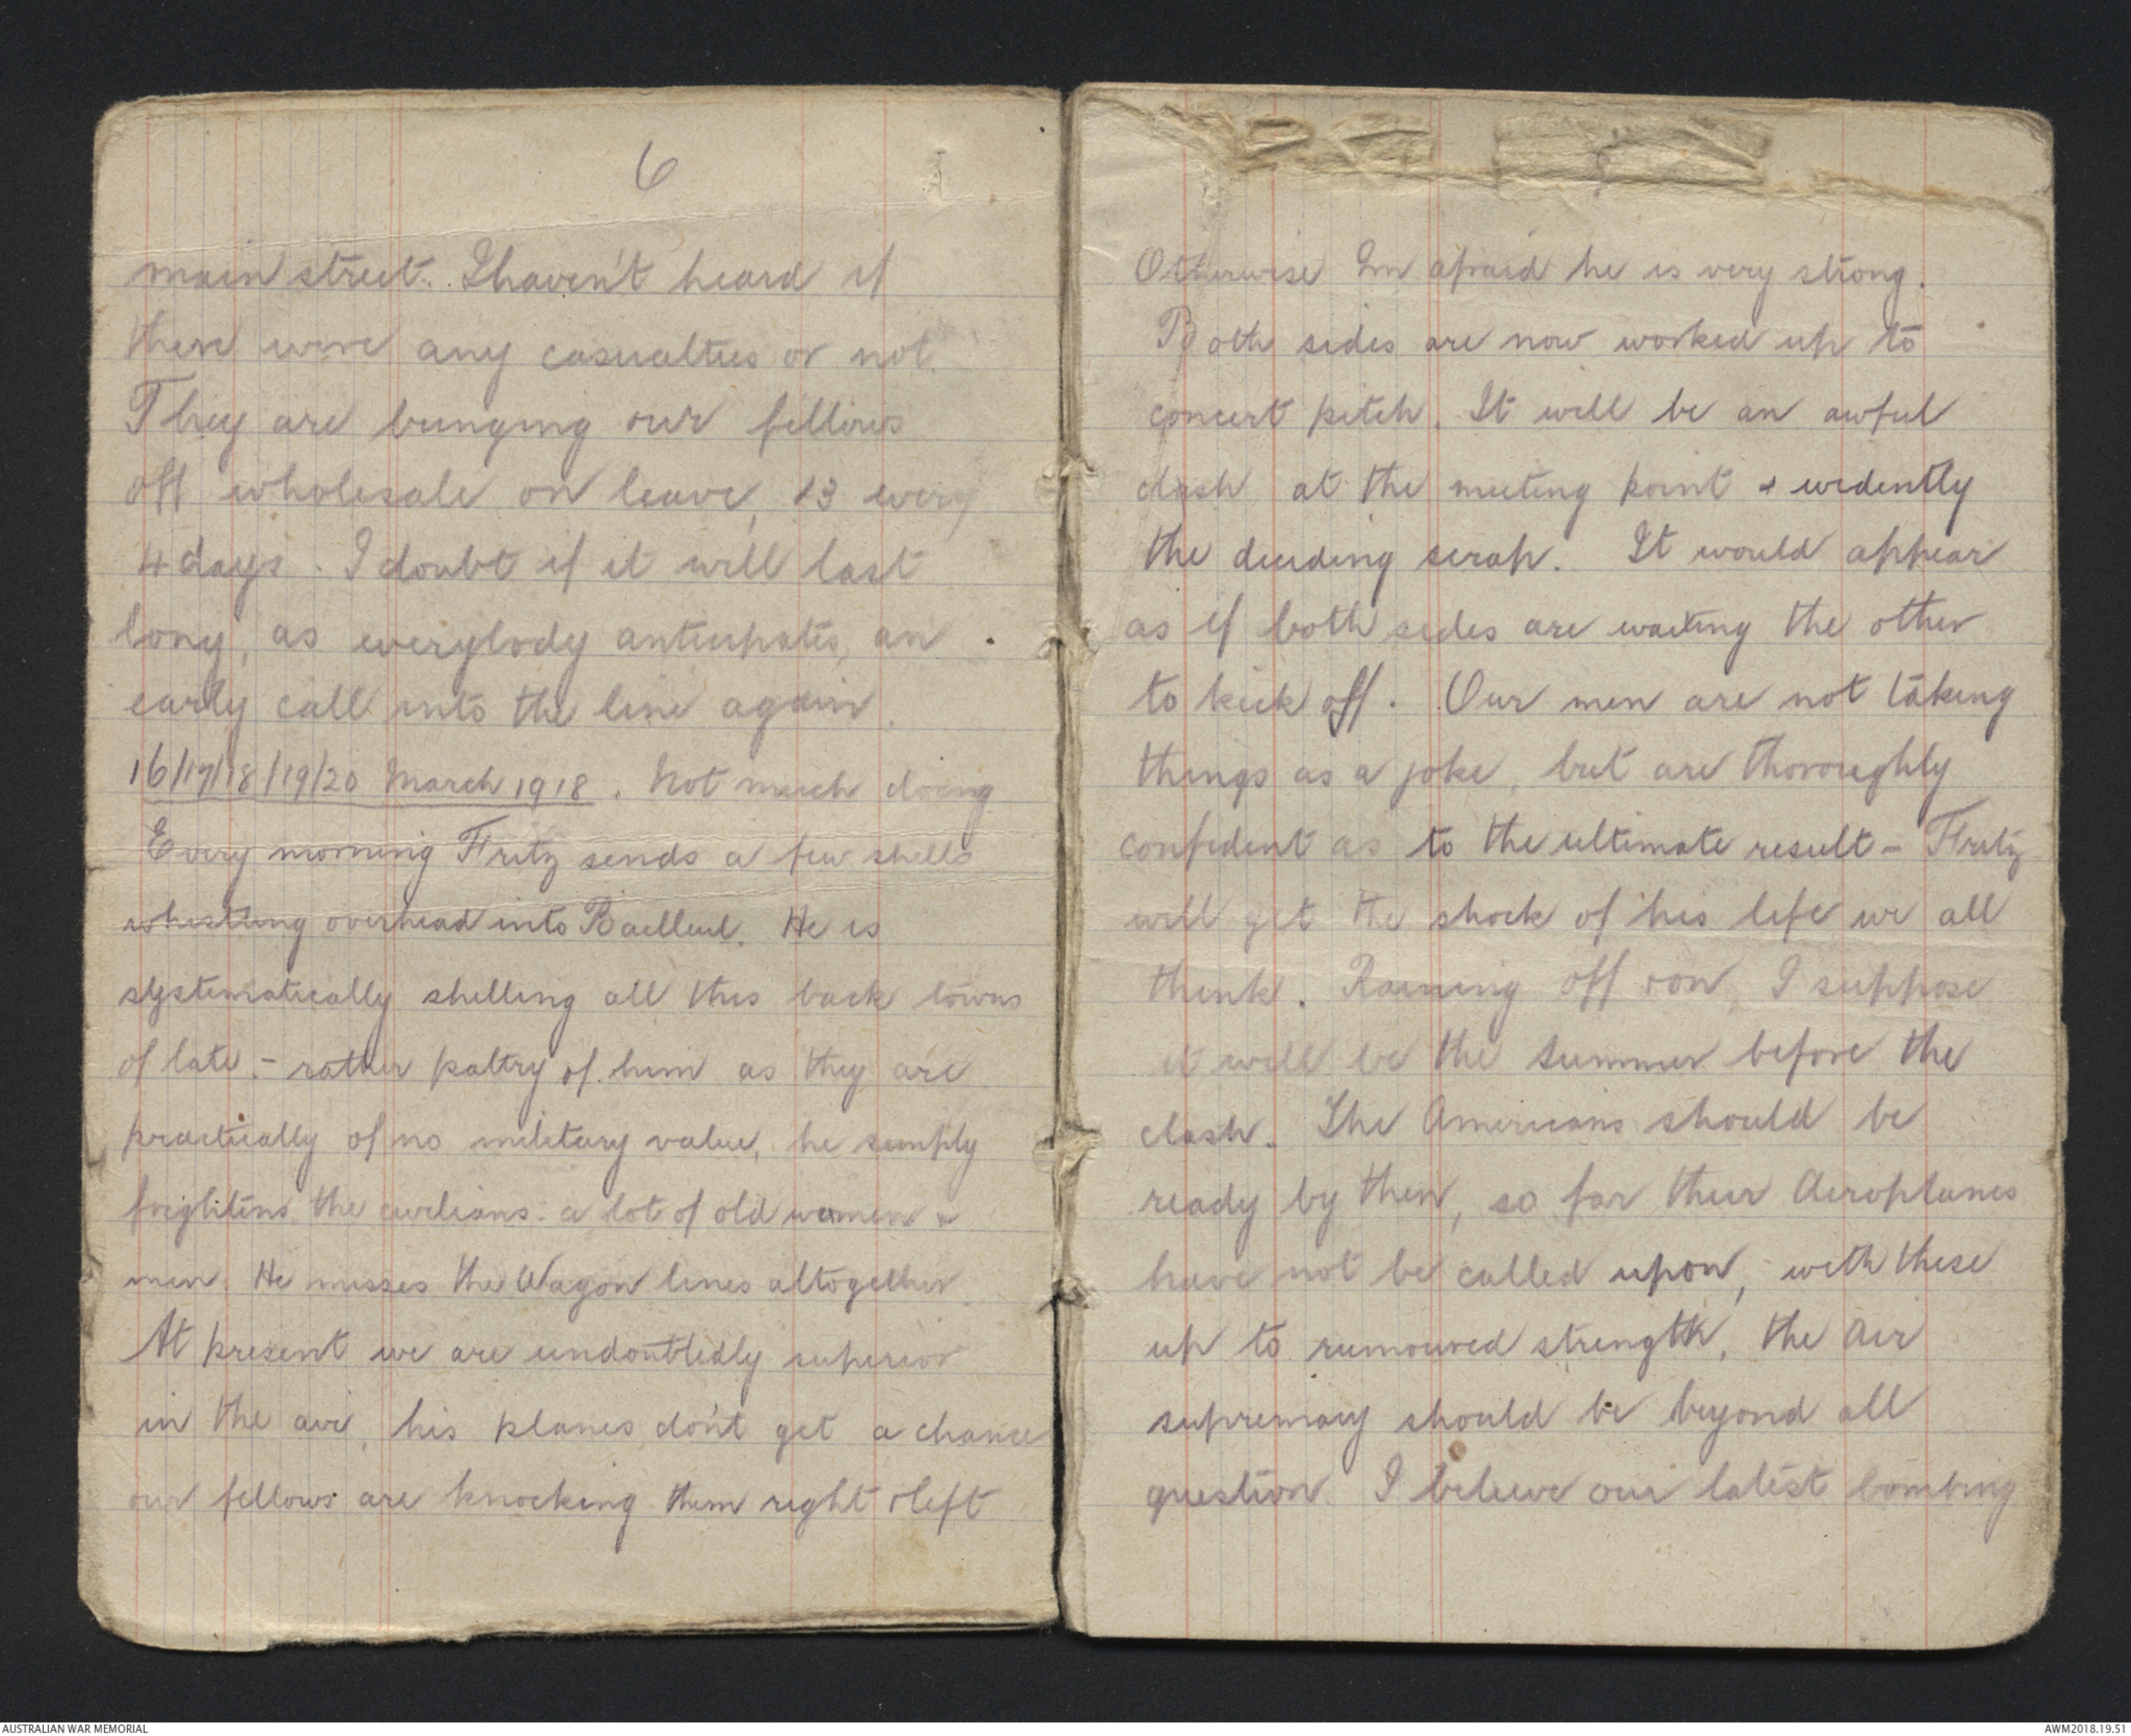 6
main street. I haven't heard if
there were any casualties or not.
They are bunging our fellows
off wholesale on leave, 13 every
4 days. I doubt if it will last
long, as everybody anticipates, an
early call into the line again.
16/17/18/19/20 March 1918. Not much doing
Every morning Fritz sends a few shells
whistling overhead into Bailleul. He is
systematically shelling all this back towns
of late. - rather paltry of him as they are
practically of no military value, he simply
frightens the civilians. a lot of old women &
men. He misses the Wagon lines altogether.
At present we are undoubtedly superior
in the air, his planes don't get a chance
our fellows are knocking them right & left
Otherwise Im afraid he is very strong.
Both sides are now worked up to
concert pitch. It will be an awful
clash at the meeting point & evidently
the deciding scrap. It would appear
as if both sides are waiting the other
to kick off. Our men are not taking
things as a joke, but are thoroughly
confident as to the ultimate result - Fritz
will get the shock of his life we all
think. Raining off & on, I suppose
it will be the summer before the
clash. The Americans should be
ready by then, so far their Aeroplanes
have not be called upon, with these
up to rumoured strength, the Air
supremacy should be beyond all
question. I believe our latest bombing
AUSTRALIAN WAR MEMORIAL
AWM2018.19.51